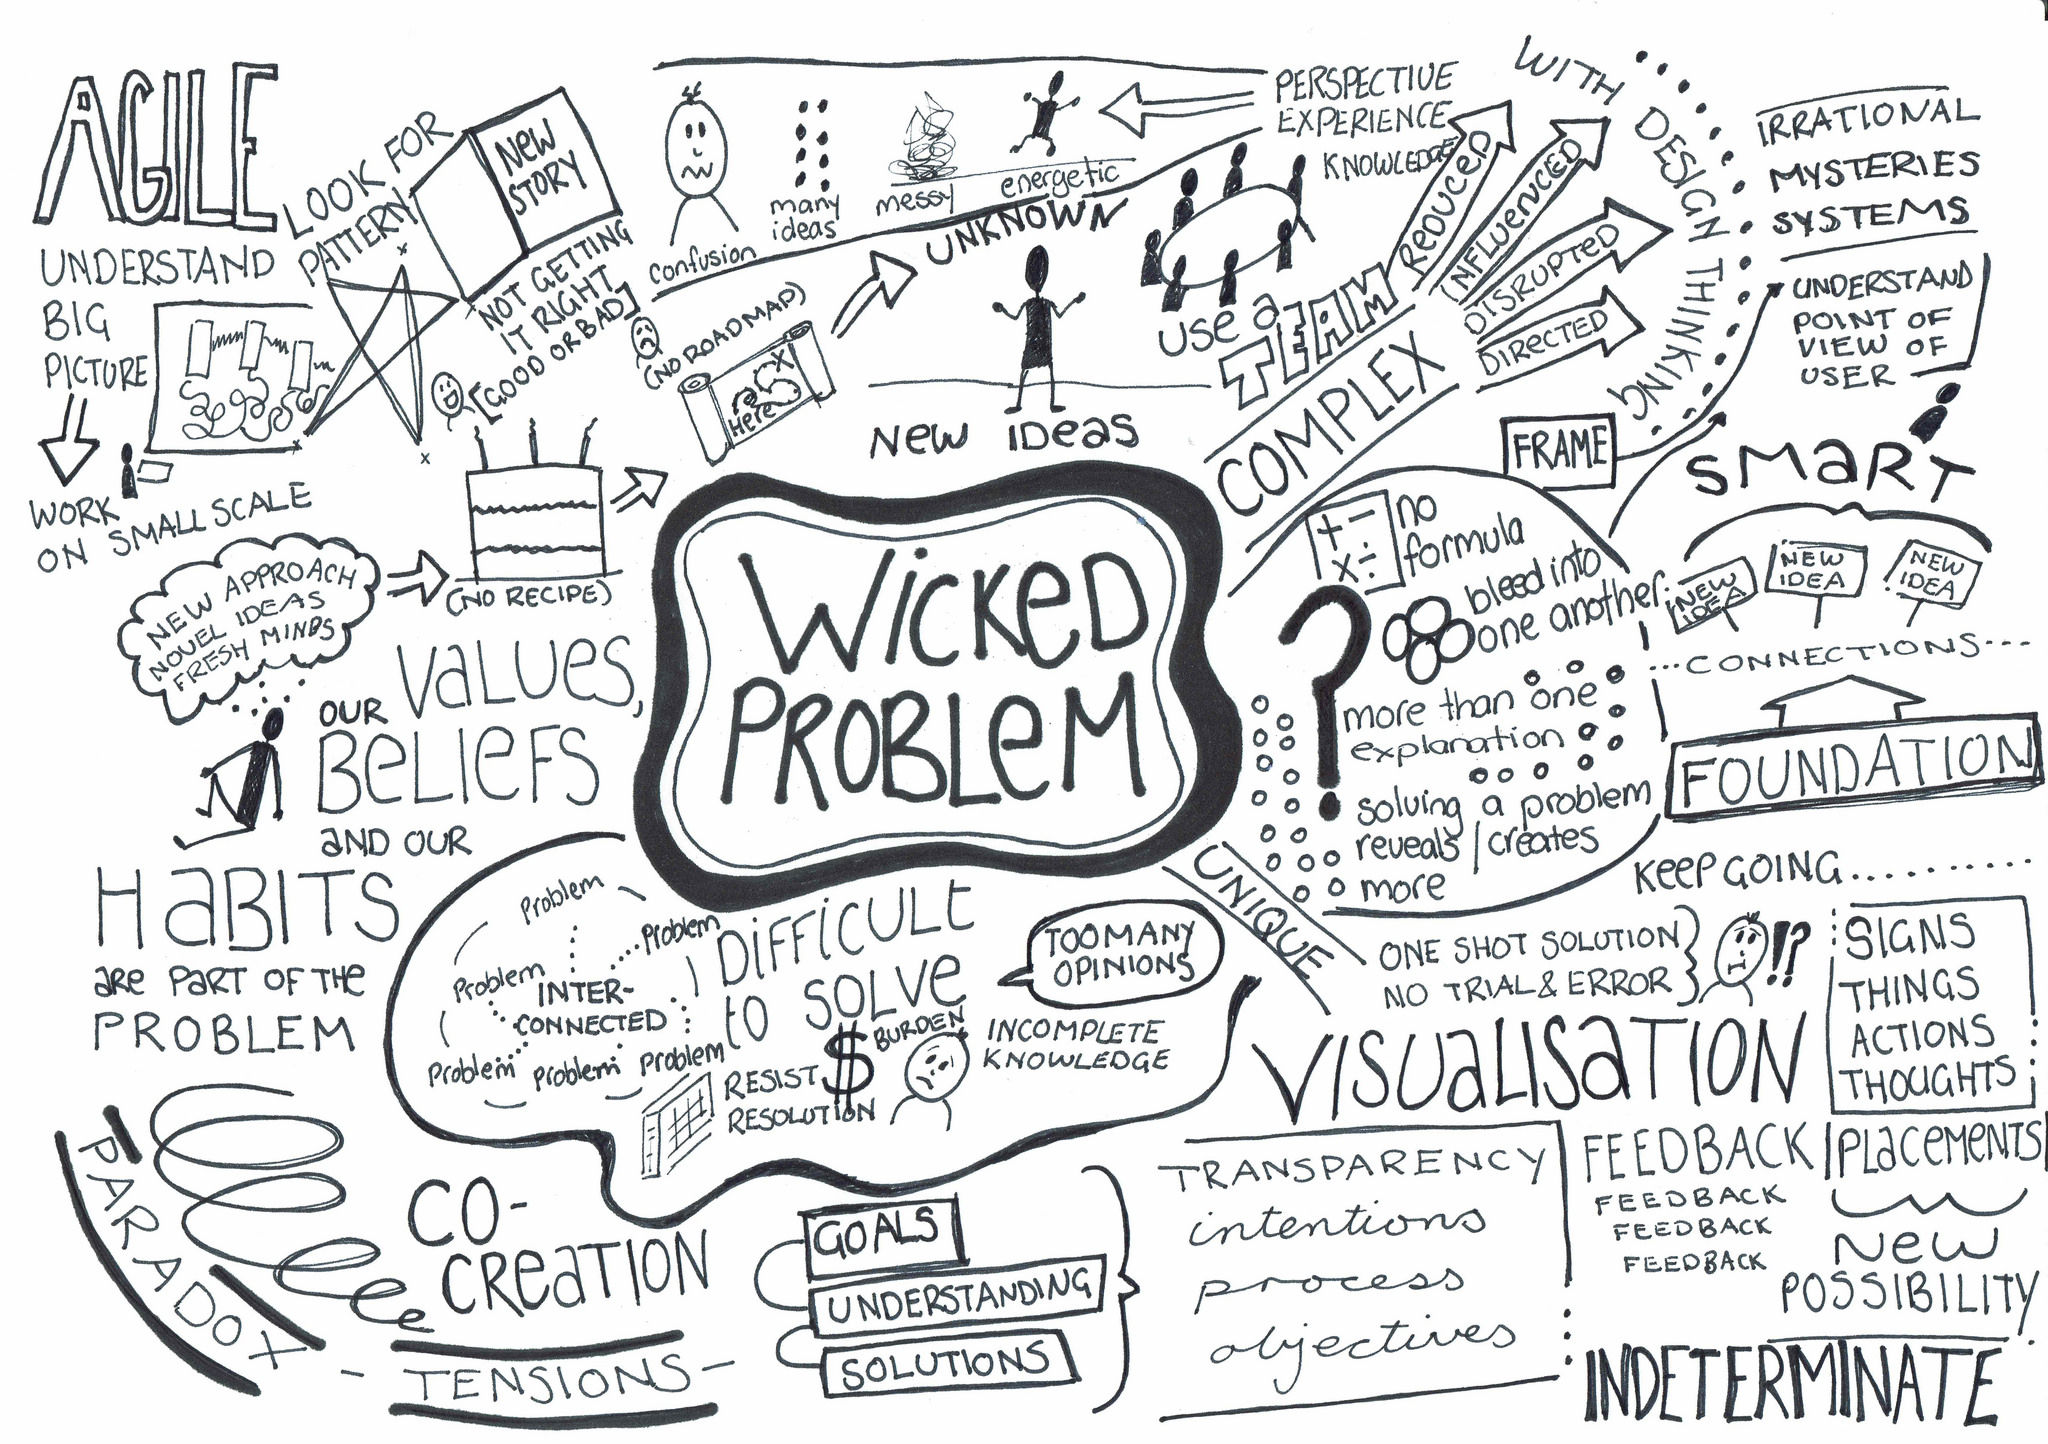 AGILE
UNDERSTAND
BIG
PICTURE
WORK
ON SMALL SCALE
LOOK FOR
PATTERN
NEW
STORY
NOT GETTING
IT RIGHT
[GOOD OR BAD]
confusion
many
ideas
messy
energetic
PERSPECTIVE
EXPERIENCE
KNOWLEDGE
UNKNOWN
(NO ROADMAP)
Here
X
NEW IDEAS
USE A
TEAM
COMPLEX
REDUCED
INFLUENCED
DISRUPTED
DIRECTED
WITH DESIGN THINKING
IRRATIONAL
MYSTERIES
SYSTEMS
UNDERSTAND
POINT OF
VIEW OF
USER
FRAME
SMART
NEW
IDEA
NEW
IDEA
NEW
IDEA
...CONNECTIONS...
FOUNDATION
NEW APPROACH
NOVEL IDEAS
FRESH MINDS
(NO RECIPE)
OUR VALUES,
BELIEFS
AND OUR
HABITS
are PART OF THE
PROBLEM
WICKED
PROBLEM
+ -
x ÷
no
formula
bleed into
one another
?
more than one
explanation
solving a problem
reveals/creates
more
UNIQUE
KEEP GOING.........
ONE SHOT SOLUTION
NO TRIAL & ERROR
!?
SIGNS
THINGS
ACTIONS
THOUGHTS
Problem
Problem
Problem
INTER-
CONNECTED
Problem
Problem
Problem
DIFFICULT
to SOLVE
RESIST
RESOLUTION
$
BURDEN
TOO MANY
OPINIONS
INCOMPLETE
KNOWLEDGE
VISUALISATION
PARADOX
CO-
CREATION
- TENSIONS -
GOALS
UNDERSTANDING
SOLUTIONS
TRANSPARENCY
intentions
process
objectives
FEEDBACK
FEEDBACK
FEEDBACK
FEEDBACK
PLACEMENTS
NEW
POSSIBILITY
INDETERMINATE